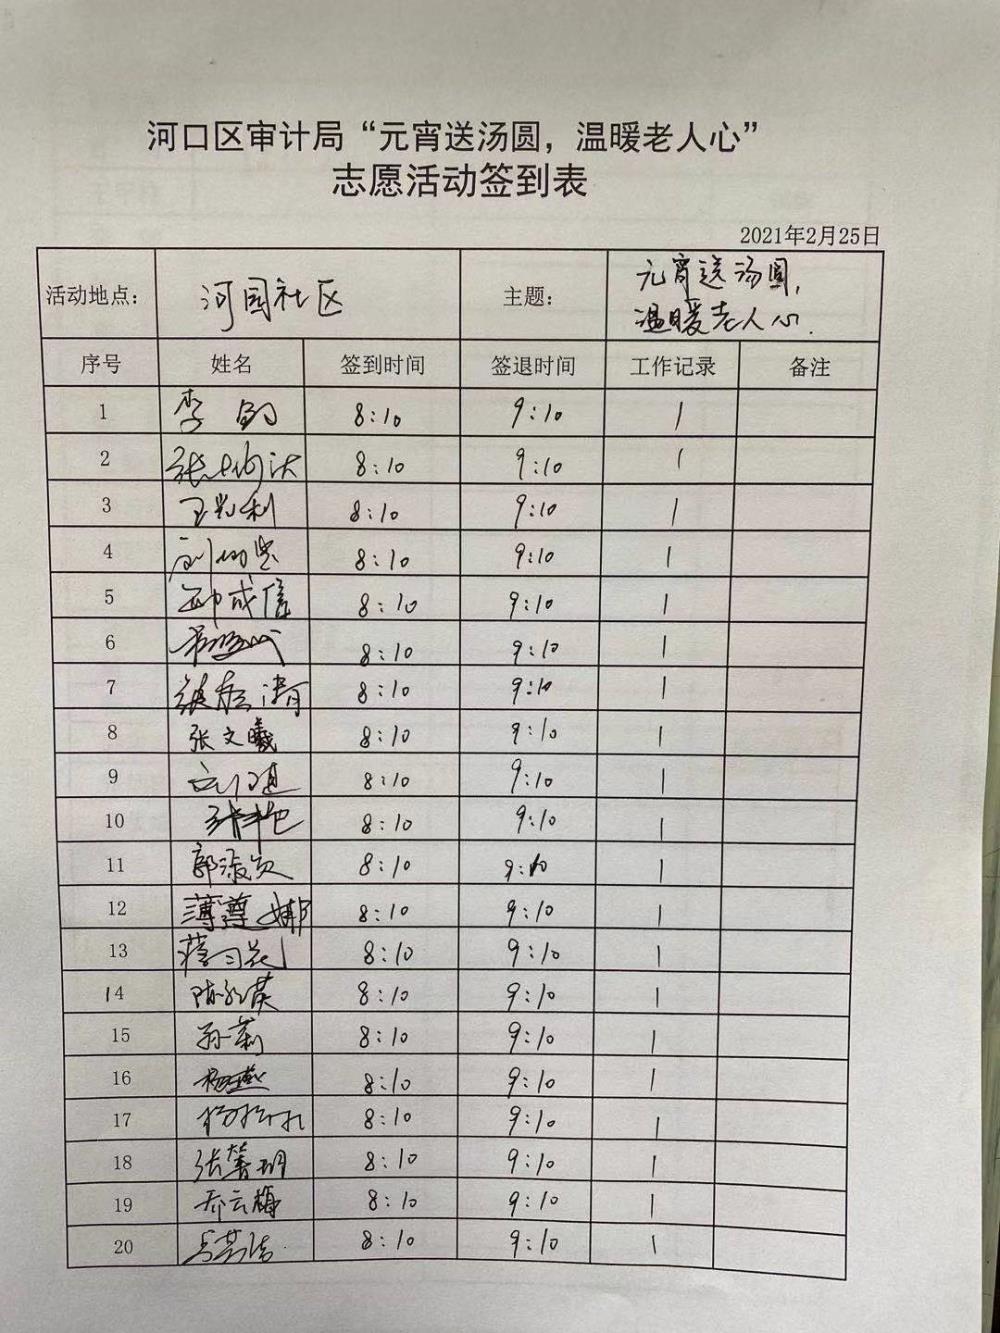 河口区审计局“元宵送汤圆，温暖老人心”
志愿活动签到表
2021年2月25日
活动地点： 河园社区 主题： 元宵送汤圆，
温暖老人心.
序号 姓名 签到时间 签退时间 工作记录 备注
1 李 8:10 9:10 1
2 8:10 9:10 1
3 8:10 9:10 1
4 8:10 9:10 1
5 8:10 9:10 1
6 8:10 9:10 1
7 8:10 9:10 1
8 张文曦 8:10 9:10 1
9 8:10 9:10 1
10 8:10 9:10 1
11 8:10 9:10 1
12 薄尊娜 8:10 9:10 1
13 8:10 9:10 1
14 8:10 9:10 1
15 孙莉 8:10 9:10 1
16 杨燕 8:10 9:10 1
17 8:10 9:10 1
18 8:10 9:10 1
19 乔云梅 8:10 9:10 1
20 8:10 9:10 1